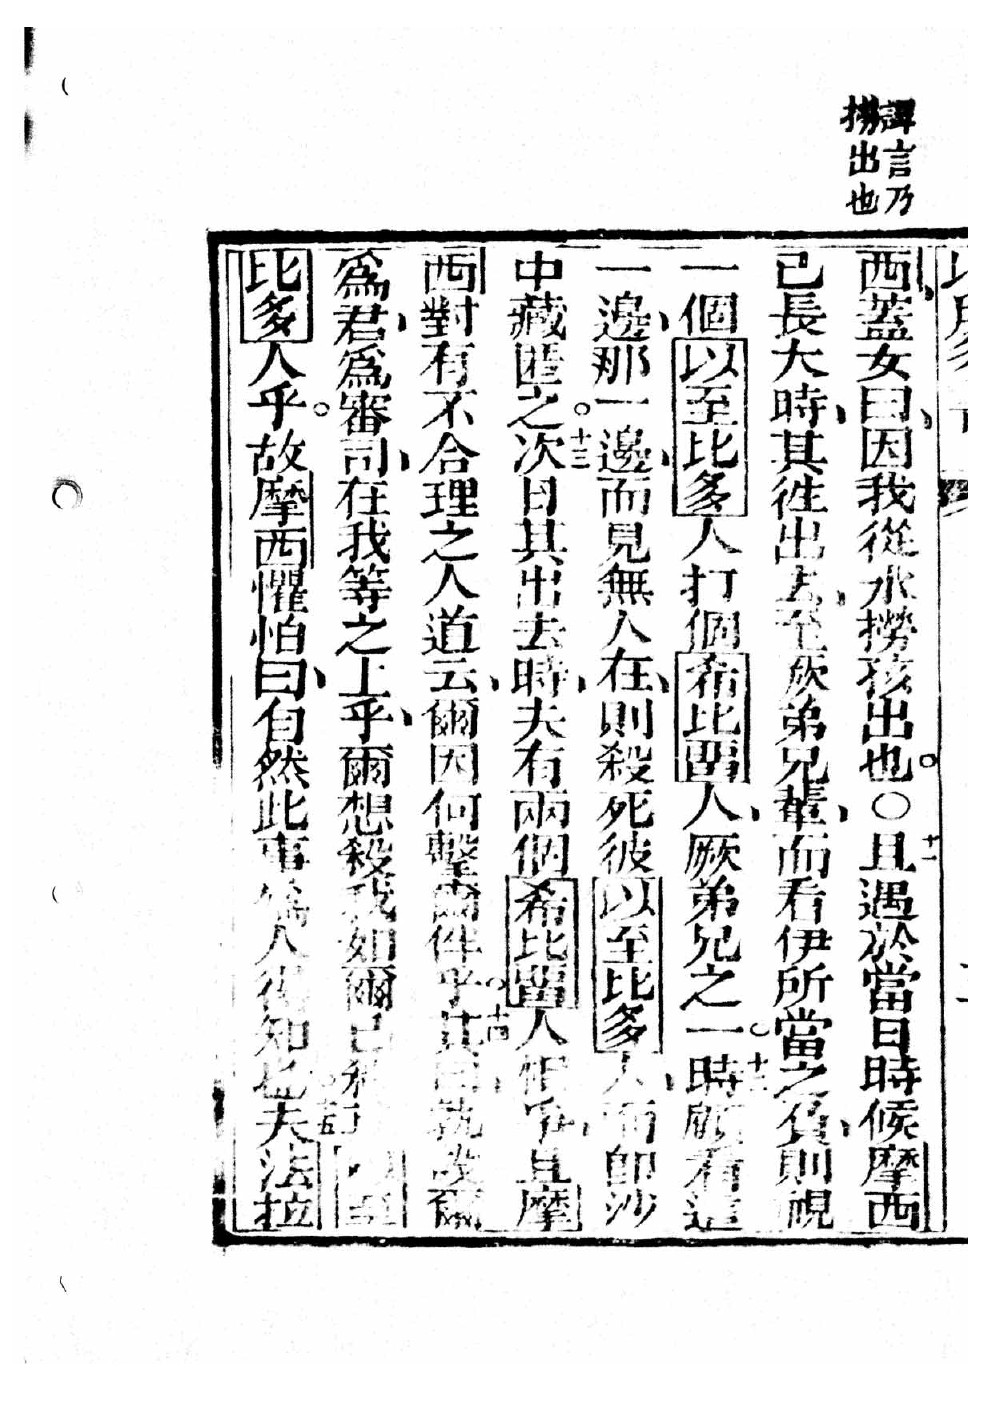 譯言乃
撈出也
西、蓋女曰、因我從水撈孩出也。○十一且遇於當日時候摩西
已長大時、其徃出去、至厥弟兄輩、而看伊所當之負、則視
一個以至比多人打個希比畱人、厥弟兄之一。十二時顧看這
一邊、那一邊、而見無人在、則殺死彼以至比多人、而卽沙
中藏匿之。十三次日其出去時、夫有兩個希比畱人相爭、且摩
西對有不合理之人道云、爾因何擊爾伴乎。十四其曰、孰設爾
爲君、爲審司、在我等之上乎、爾想殺我如爾已殺了以至
比多人乎。故摩西懼怕曰、自然此事爲人得知也。十五夫法拉